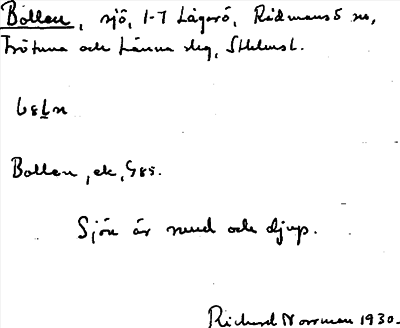 Bollen, sjö, 1-7 Lågarö, Rådmansö sn,
Frötuna och Länna slg, Sthlms l.
Bollen, ek, G85.
Sjön är rund och djup.
Richard Norrman 1930.